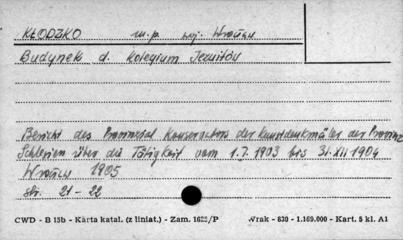 KŁODZKO m.p. woj. Wrocław
Budynek d. Kolegium Jezuitów
Bericht des Provinzial Konservators der Kunstdenkmäler der Provinz
Schlesien über die Tätigkeit vom 1.7.1903 bis 31.XII 1904
Wrocław 1905
str. 21-22
CWD - B 15b - Karta katal. (z liniat.) - Zam. 1625/P Wrak - 630 - 1.169.000 - Kart. 5 kl. A1